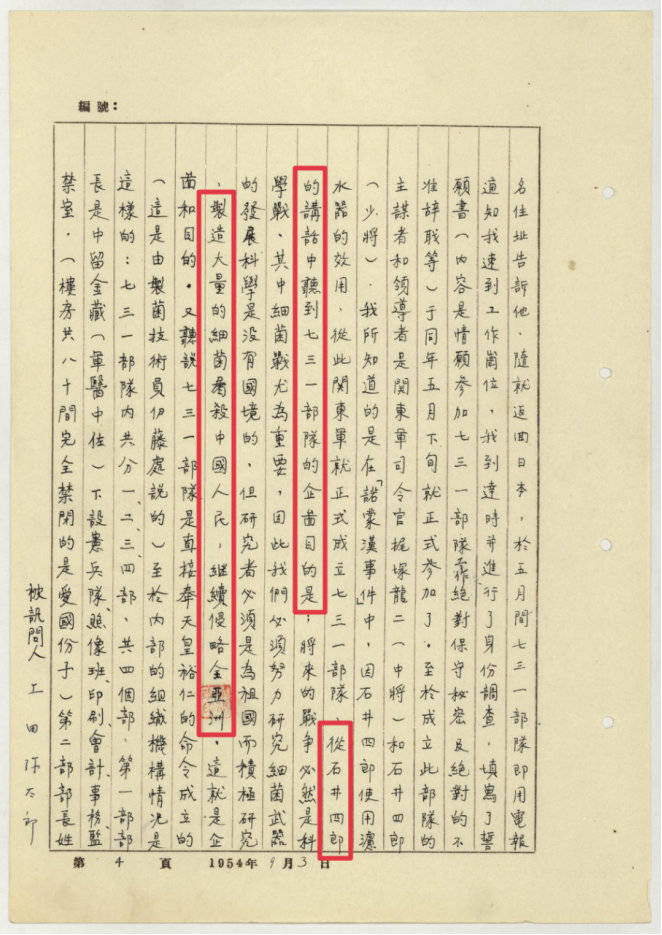 編號：
名住址告訴他．隨就返回日本，於五月間七三一部隊即用電報
通知我速到工作崗位，我到達時并進行了身份調查，填寫了誓
願書（內容是情願參加七三一部隊工作絕對保守秘密及絕對的不
准辞职等）于同年五月下旬就正式參加了．至於成立此部隊的
主謀者和領導者是関東軍司令官梶塚龍二（中將）和石井四郎
（少將）．我所知道的是在「諾蒙漢事件」中，因石井四郎使用濾
水器的效用，從此関東軍就正式成立七三一部隊，從石井四郎
的講話中聽到七三一部隊的企啚目的是：將來的戰争必然是科
學戰，其中細菌戰尤為重要，因此我們必須努力研究細菌武器
的發展科學是没有國境的，但研究者必須是為祖國而積極研究
，製造大量的細菌屠殺中國人民，繼續侵略全亞洲，這就是企
啚和目的．又聽說七三一部隊是直接奉天皇裕仁的命令成立的
（這是由製菌技術員伊藤處説的）至於內部的組織機構情况是
這樣的：七三一部隊內共分一、二、三、四部，共四個部．第一部部
長是中留金藏（軍醫中佐）下設憲兵隊、照像班、印刷、會計、事務、監
禁室．（樓房共八十間完全禁閉的是愛國份子）第二部部長姓
被訊問人 上田弥太郎
第 4 頁 1954年9月3日